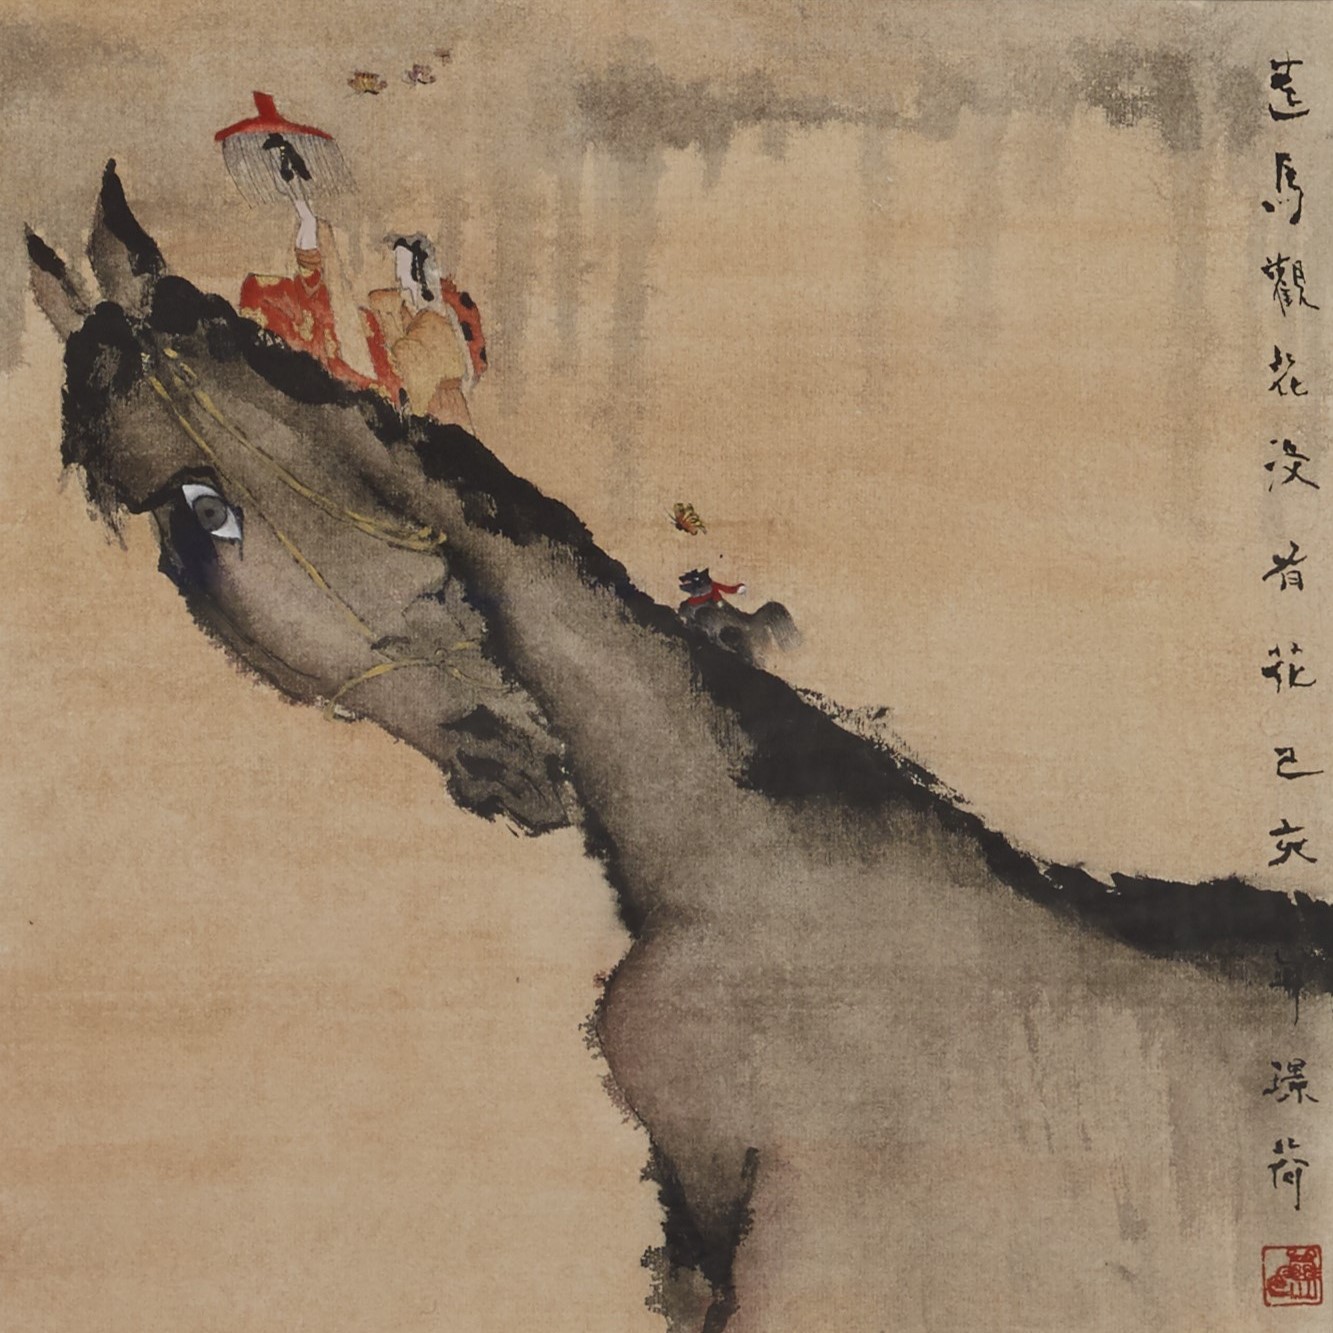 走馬觀花沒有花己亥年璟荷